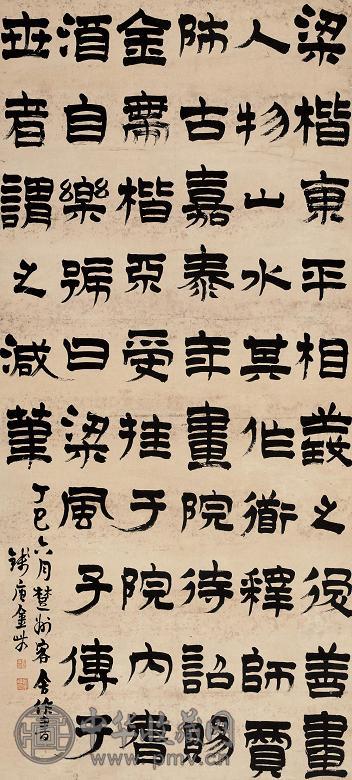 梁楷東平相羲之後善畫
人物山水其作衜釋師賈
師古嘉泰年畫院待詔賜
金帶楷不受挂于院内耆
酒自樂號曰梁風子傳于
世者謂之減筆
丁巳六月楚州客舍作書
錢唐金農
中华收藏网
www.pmv.cn